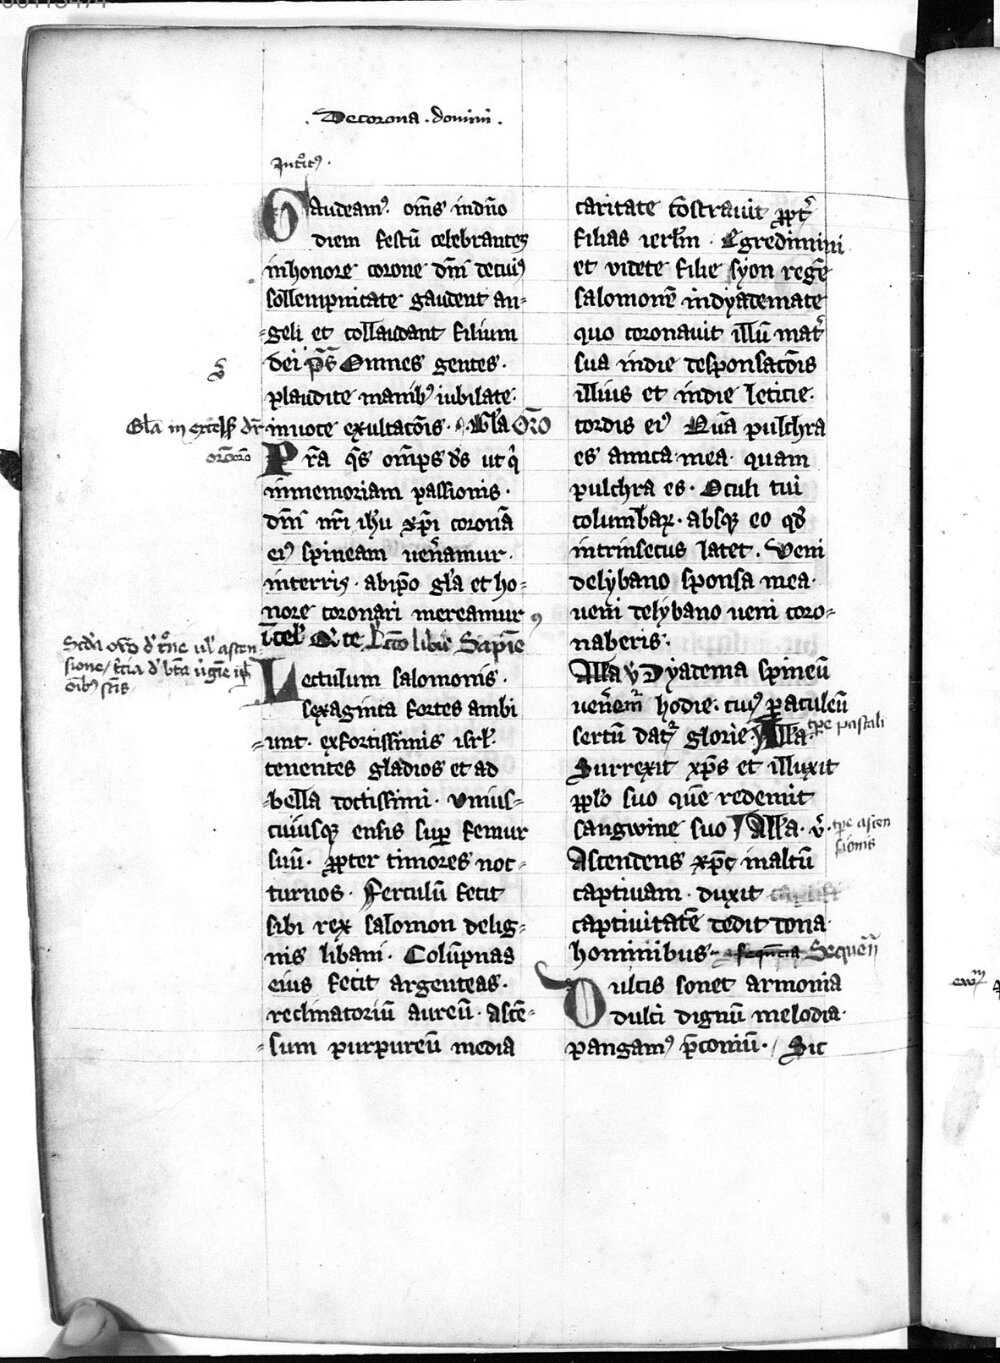 . De corona . domini .
Intoitꝯ .
Gaudeamꝰ . om̄s in dn̄o
diem festū celebrantes
in honore corone dn̄i de cuiꝰ
sollempnitate gaudent an-
geli et collaudant filium
dei . ps̄ Omnes gentes .
plaudite manibꝰ iubilate .
in uoce exultacōis . Gl̄a Oro
Gl̄a in excels̄ dr̄
P r̄a qs̄ om̄ps d̄s ut qͥ
in memoriam passionis .
dn̄i nr̄i ih̄u xp̄i coronā
eiꝰ spineam uen̄amur .
in terris . ab ip̄o gl̄a et ho-
nore coronari mereamur
Lcō libri Sapīe
Lectulum salomonis .
sexaginta fortes ambi
-unt . ex fortissimis isrl̄ .
tenentes gladios et ad
-bella doctissimi . Vnius-
cuiusqꝫ ensis suꝑ femur
suū . ꝓpter timores noc-
turnos . Ferculū fecit
sibi rex salomon de lig-
nis libani . Colūpnas
eius fecit argenteas .
reclinatoriū aureū . ascē-
-sum purpureū media
caritate cōstrauit ꝓpt̄
filias ierlm̄ . Egredimini
et videte filie syon regē
salomonē in dyademate
quo coronauit illū mat̄
sua in die desponsacōis
illius et in die leticie .
cordis eiꝰ Quā pulchra
es amica mea . quam
pulchra es . Oculi tui
columbaꝝ . absqꝫ eo qd̄
intrinsecus latet . Veni
de lybano sponsa mea .
ueni de lybano ueni coro-
naberis .
All̄a v̄ Dyadema spineū
uen̄em̄ hodie . cuiꝰ ꝑ aculeū
sertū datꝰ glorie . All̄a .
tp̄e pascali
Surrexit xp̄s et illuxit
pp̄lo suo quē redemit
sangwine suo All̄a . v̄ .
tp̄e ascen
sionis
Ascendens xp̄c in altū
captiuam . duxit
captiuitatē dedit dona
hominibus . Sequen̄
Dulcis sonet armonia
dulci dignū melodia .
pangamꝰ p̄coniū . Sic